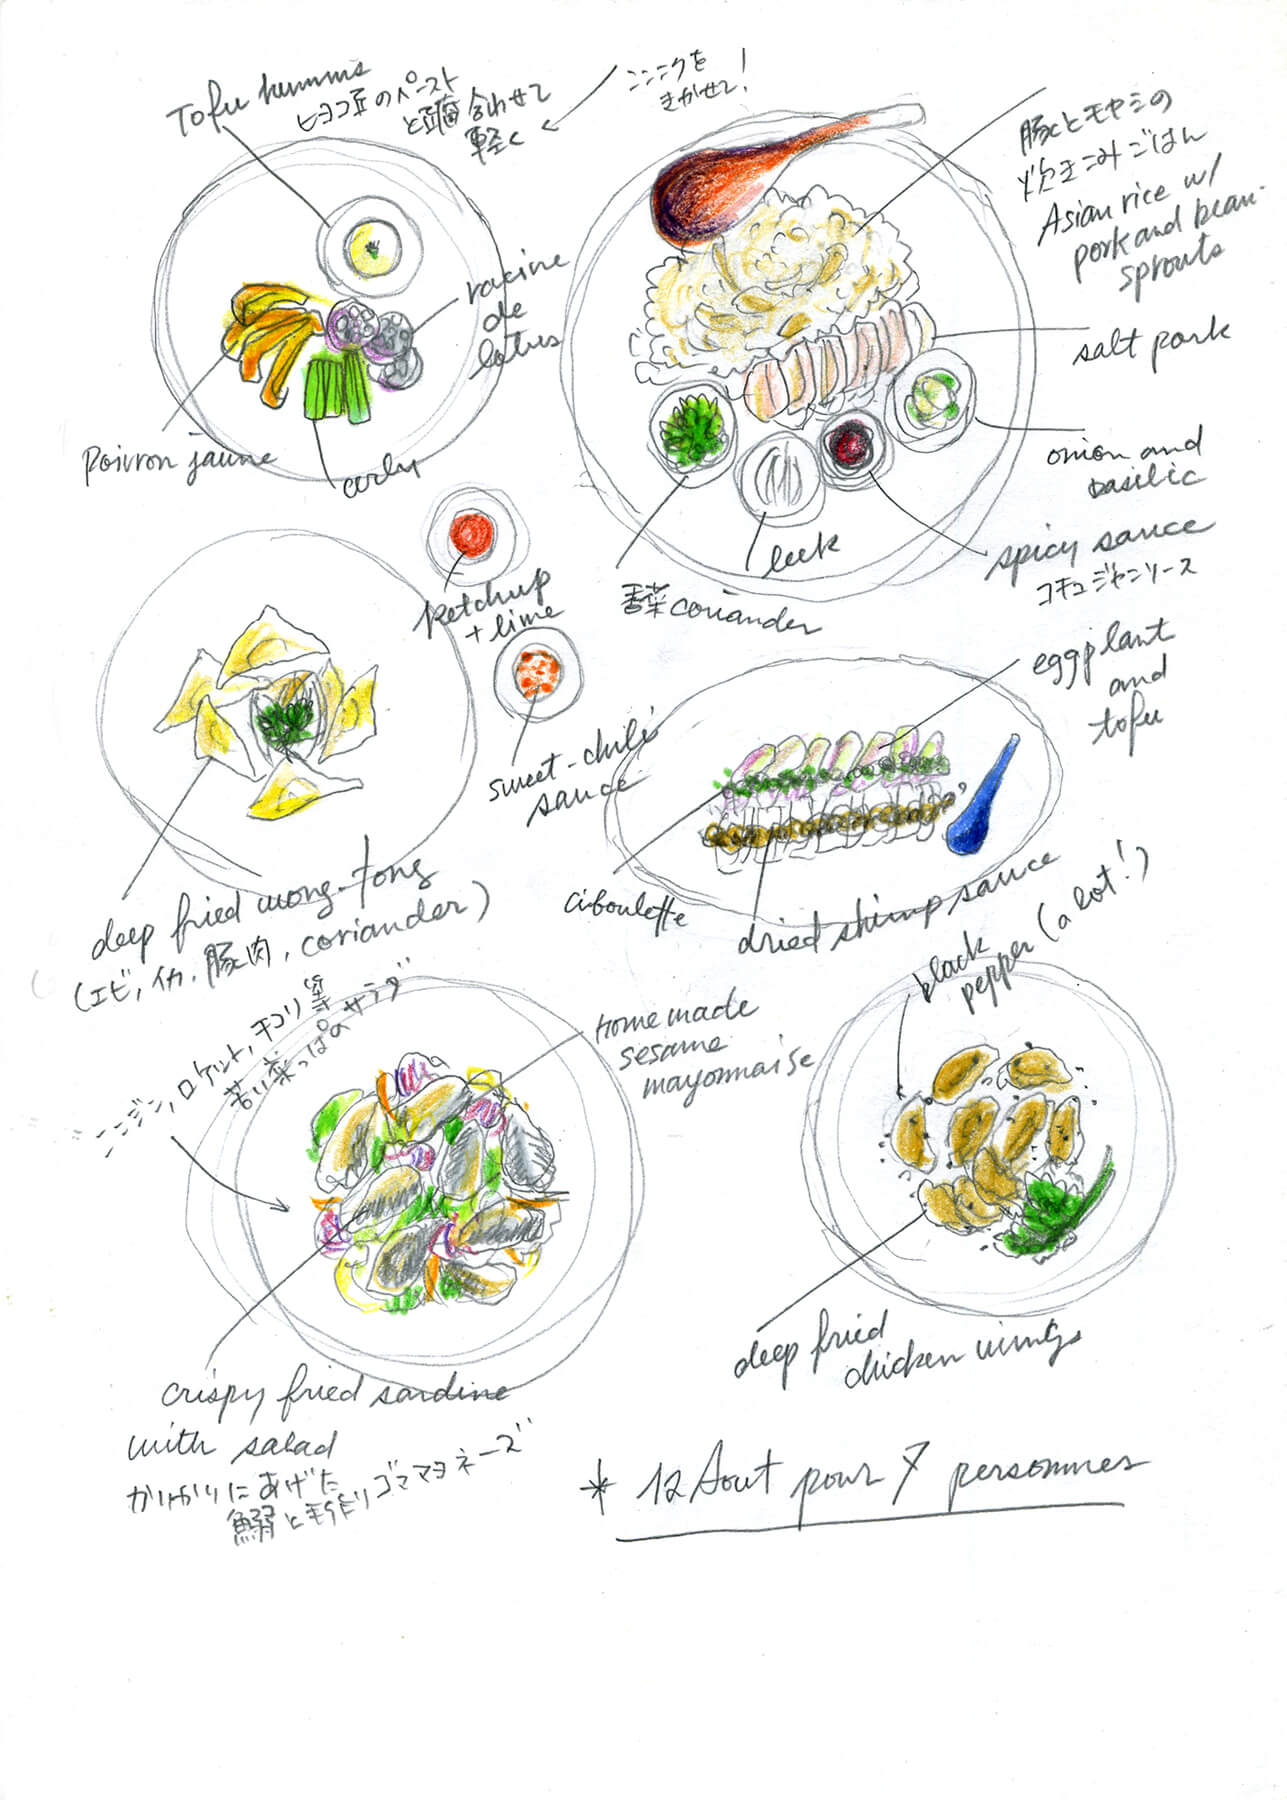 Tofu hummus
ヒヨコ豆のペースト
と豆腐合わせて
軽く
ニンニクを
きかせて!
racine
de
lotus
Poivron jaune
豚とモヤシの
炊きこみごはん
Asian rice w/
pork and bean-
sprouts
salt pork
onion and
basilic
spicy sauce
コチュジャンソース
leek
香菜 coriander
ketchup
+ lime
sweet-chili
sauce
deep fried wong-tong
(エビ, イカ, 豚肉, coriander)
eggplant
and
tofu
ciboulette
dried shrimp sauce
ニンジン, ロケット, チコリ等
苦い葉っぱのサラダ
home made
sesame
mayonnaise
crispy fried sardine
with salad
かりかりにあげた
鰯と手作りゴママヨネーズ
black
pepper (a lot!)
deep fried
chicken wings
* 12 Aout pour 7 personnes